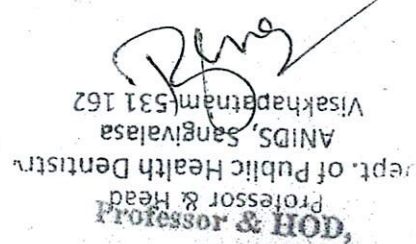 Professor & HOD,
Professor & Head
ept. of Public Health Dentistr
ANIDS, Sangivalasa
Visakhapatnam-531 162